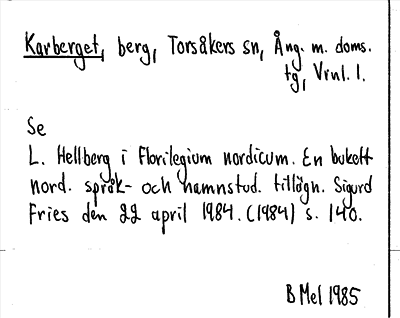 Karberget, berg, Torsåkers sn, Ång. m. doms.
tg, Vrnl. l.
Se
L. Hellberg i Florilegium nordicum. En bukett
nord. språk- och namnstud. tillägn. Sigurd
Fries den 22 april 1984. (1984) s. 140.
B Mel 1985